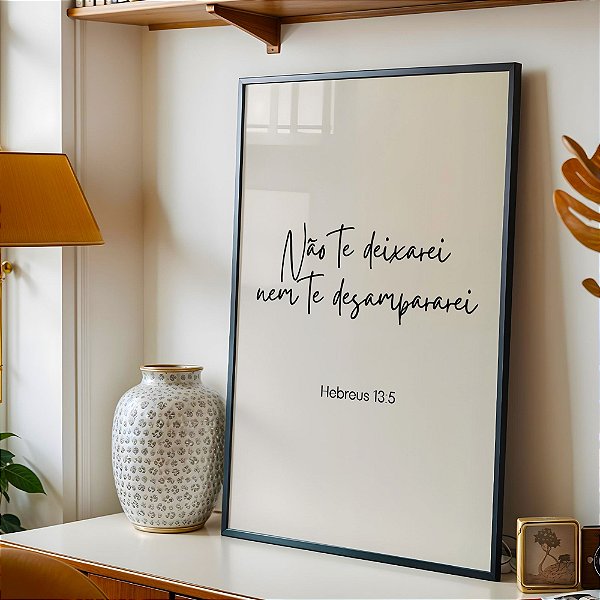 Não te deixarei
nem te desampararei
Hebreus 13:5